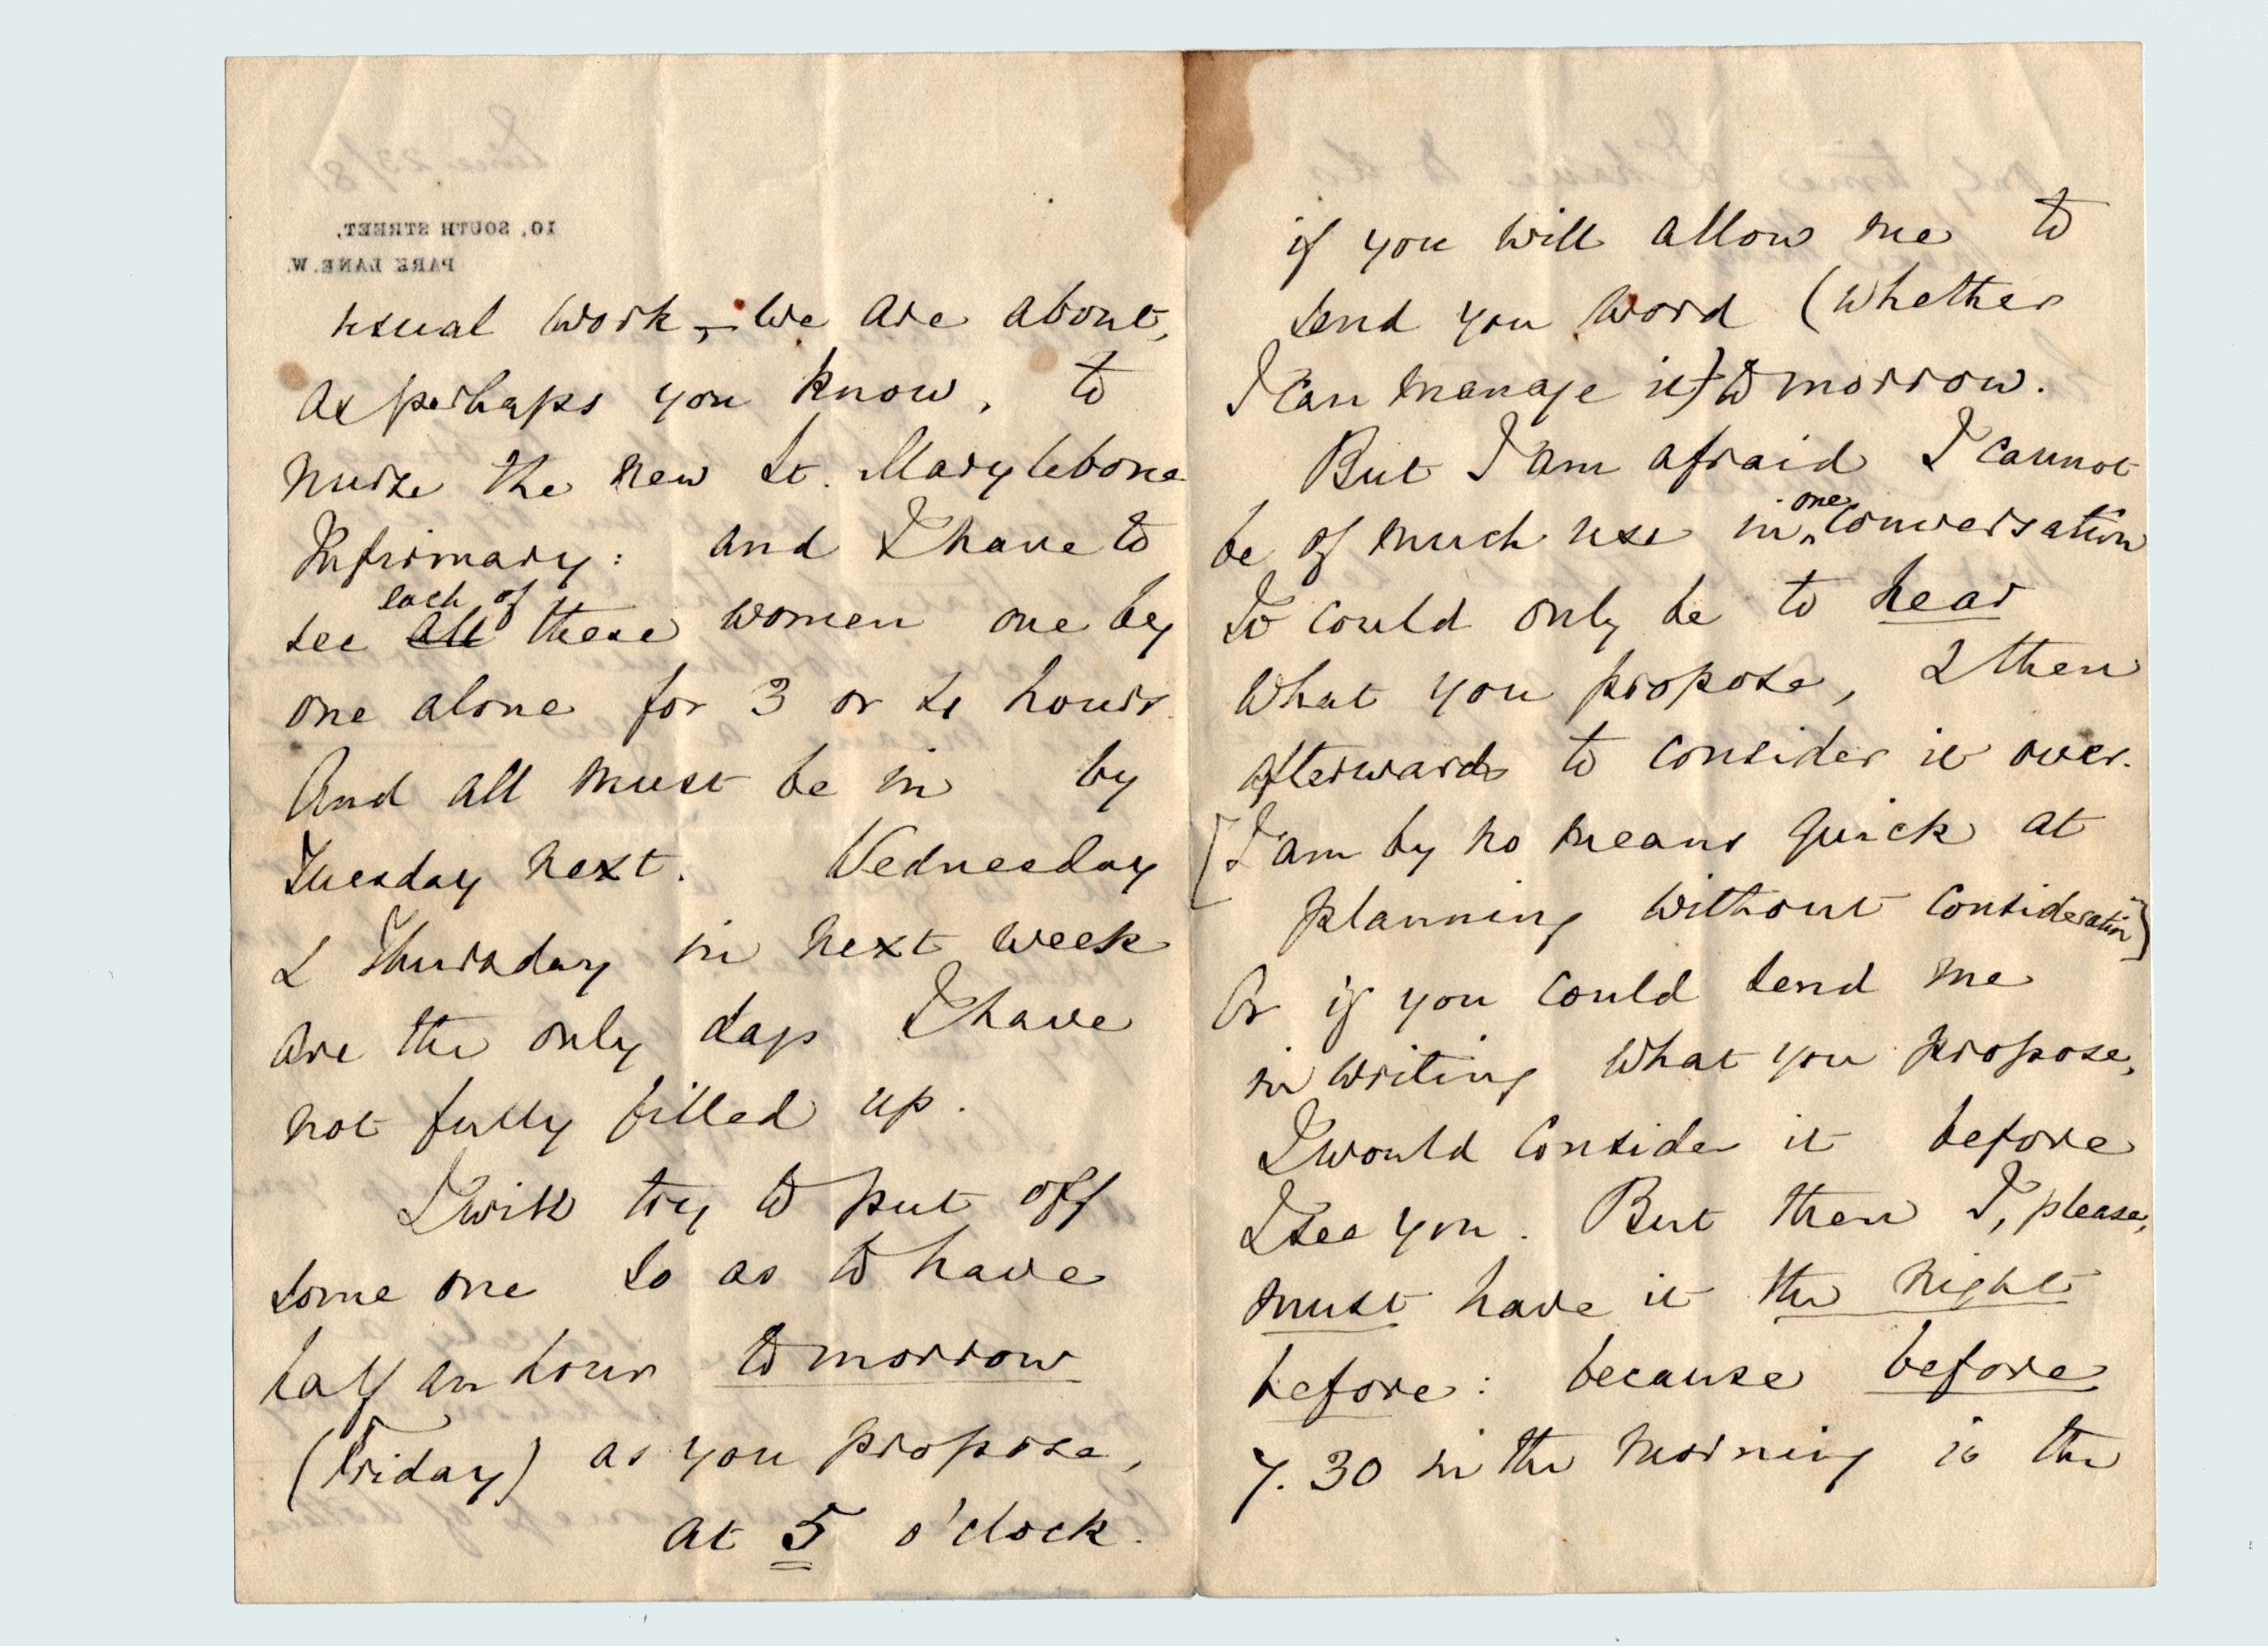 10, SOUTH STREET,
PARK LANE. W.
usual work, – We are about,
as perhaps you know, to
nurse the new St. Marylebone
Infirmary: and I have to
each of
see all these women one by
one alone for 3 or 4 hours
And all must be in by
Tuesday next. Wednesday
& Thursday in next week
are the only days I have
not fully filled up.
I will try to put off
some one so as to have
half an hour tomorrow
(Friday) as you propose,
at 5 o'clock.
if you will allow me to
send you word (whether
I can manage it) tomorrow.
But I am afraid I cannot
one
be of much use in conversation
It could only be to hear
what you propose, & then
afterwards to consider it over.
[I am by no means quick at
planning without consideration]
Or if you could send me
in writing what you propose,
I would consider it before
I see you. But then I, please,
must have it the night
before: because before
7.30 in the morning is the